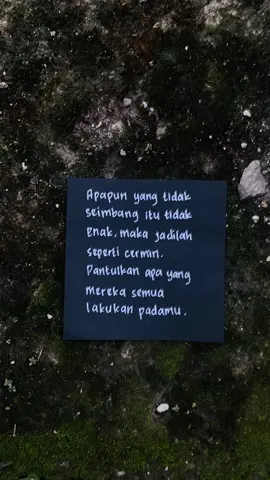 Apapun yang tidak
seimbang itu tidak
enak, maka jadilah
seperti cermin.
Pantulkan apa yang
mereka semua
lakukan padamu.